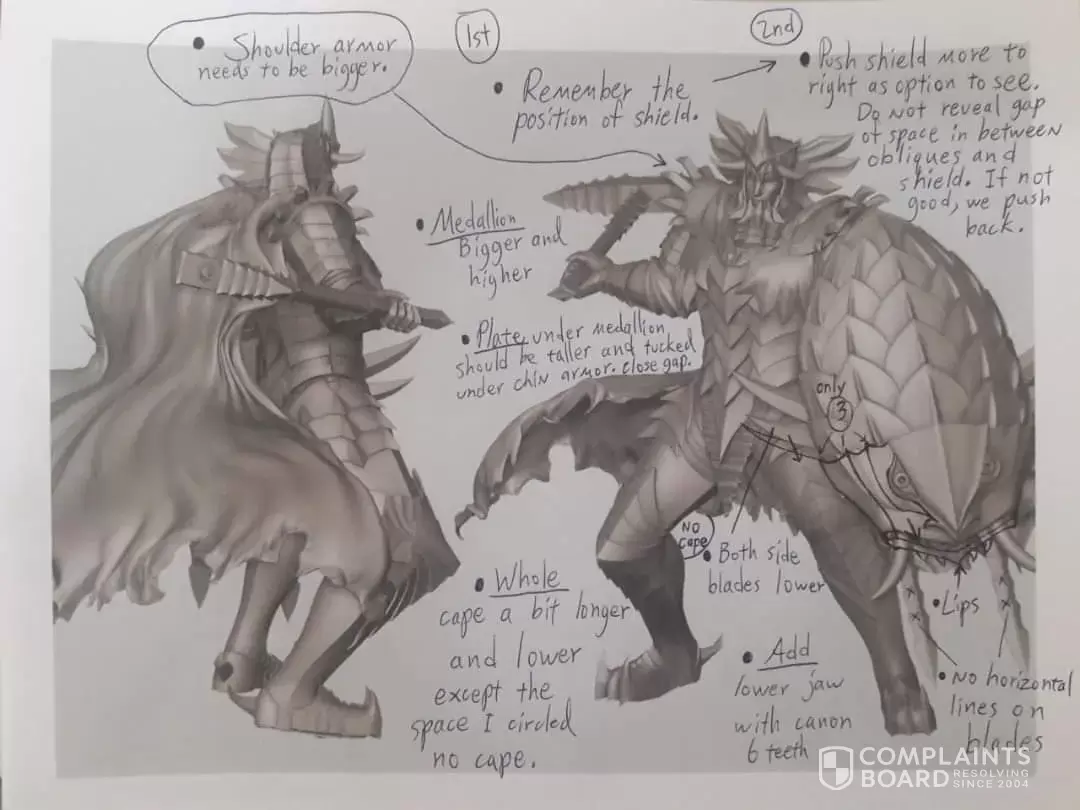 • Shoulder armor
needs to be bigger.
1st
2nd
• Remember the
position of shield.
• Push shield more to
right as option to see.
Do not reveal gap
of space in between
obliques and
shield. If not
good, we push
back.
• Medallion
Bigger and
higher
• Plate under medallion
should be taller and tucked
under chin armor. close gap.
only
3
No
cape
• Both side
blades lower
• Whole
cape a bit longer
and lower
except the
space I circled
no cape.
• Add
lower jaw
with canon
6 teeth
• Lips
• No horizontal
lines on
blades
COMPLAINTS
BOARD RESOLVING
SINCE 2004